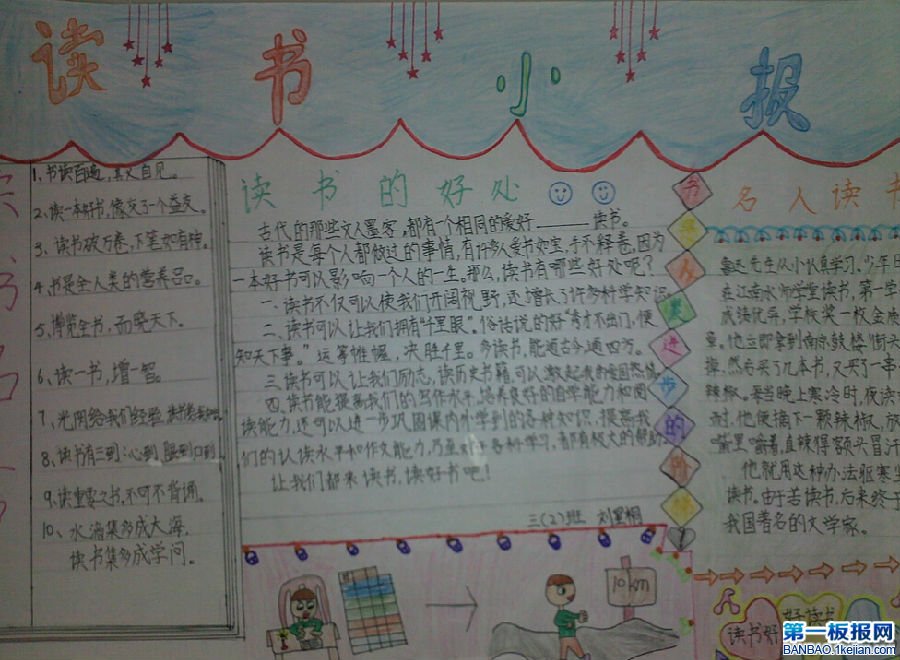 读书小报
1、书读百遍,其义自见。
2、读一本好书,像交了一个益友。
3、读书破万卷,下笔如有神。
4、书是全人类的营养品。
5、博览全书,而晓天下。
6、读一书,增一智。
7、光阴给我们经验,
8、读书有三到:心到,眼到口到
9、读重要之书,不可不背诵。
10、水滴集多成大海,
读书集多成学问。
读书的好处
古代的那些文人墨客,都有一个相同的爱好——读书。
读书是每个人都做过的事情,有许多人爱书如宝,手不释卷,因为
一本好书可以影响一个人的一生。那么,读书有哪些好处呢?
一、读书不仅可以使我们开阔视野,还增长了许多科学知识
二、读书可以让我们拥有“千里眼”。俗话说的好“秀才不出门,便
知天下事。”运筹帷幄,决胜千里。多读书,能通古今,通四方。
三、读书可以让我们励志,读历史书籍,可以激起我的爱国热情。
四、读书能提高我们的写作水平,培养良好的自学能力和阅
读能力,还可以进一步巩固课内外学到的各种知识,提高我
们的认读水平和作文能力,乃至对于各种学习,都有极大的帮助
让我们都来读书,读好书吧!
三(2)班 刘
书是人类进步的阶梯!
名人读书
鲁迅先生从小认真学习,少年时
在江南水师学堂读书,第一学
成绩优异,学校奖一枚金质
章。他立即拿到南京鼓楼街头
掉,然后买了几本书,又买了一串
辣椒。每当晚上寒冷时,夜读
时,他便摘下一颗辣椒,放
嘴里嚼着,直辣得额头冒汗
他就用这种办法驱寒坚
读书。由于苦读书,后来终于
我国著名的文学家。
10km
读书好
好读书
第一板报网
BANBAO.1kejian.com